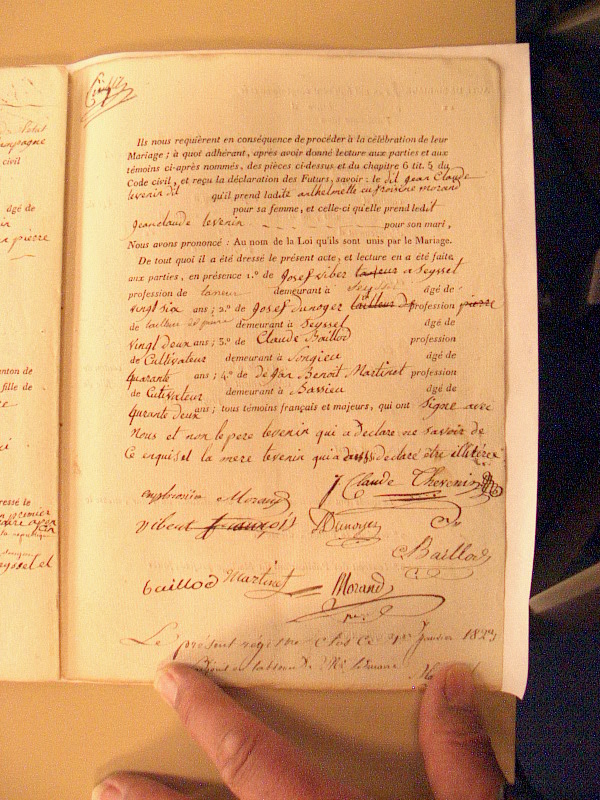 civil
âgé de
pierre
nton de
fille de
ressé le
Ils nous requièrent en conséquence de procéder à la célébration de leur
Mariage ; à quoi adhérant, après avoir donné lecture aux parties et aux
témoins ci-après nommés, des pièces ci-dessus et du chapitre 6 tit. 5 du
Code civil, et reçu la déclaration des Futurs, savoir : le dit jean Claude
tevenin dit qu'il prend ladite anthelmette eufroisine morand
pour sa femme, et celle-ci qu'elle prend ledit
jean claude tevenin pour son mari,
Nous avons prononcé : Au nom de la Loi qu'ils sont unis par le Mariage.
De tout quoi il a été dressé le présent acte, et lecture en a été faite
aux parties, en présence 1.° de Josef viber a Seyssel
profession de taneur demeurant à Seyssel âgé de
vingt six ans ; 2.° de Josef Dunoyer tailleur de profession pierre
de tailleur de pierre demeurant à Seyssel âgé de
vingt deux ans ; 3.° de Claude Baillod profession
de Cultivateur demeurant à Songieu âgé de
quarante ans ; 4.° de Jean Benoit Martinet profession
de Cutivateur demeurant à Bassieu âgé de
quarante deux ans ; tous témoins français et majeurs, qui ont signé avec
nous et non le pere tevenin qui a declare ne savoir de
Ce enquis et la mere tevenin qui a declaré être illitérée
Morand J Claude Thevenin
vibert françois Dunoyer
Baillod
baillod Martinet Morand
Le présent régistre Clos Ce 1er Janvier 1823